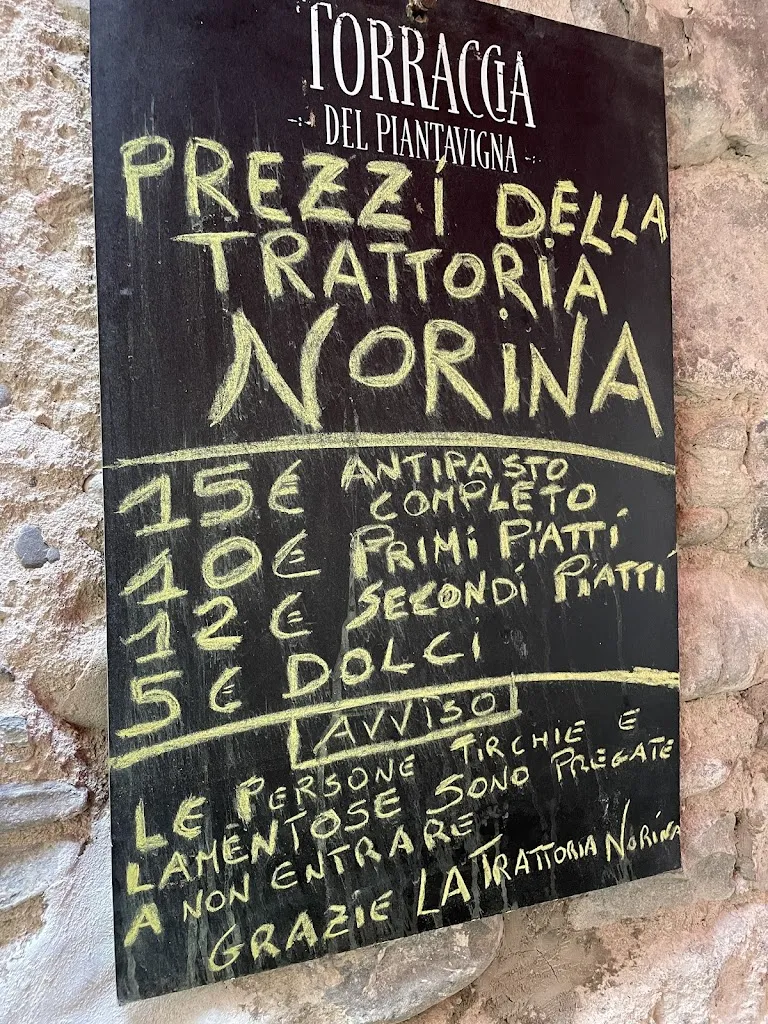 TORRACCIA
DEL PIANTAVIGNA
PREZZI DELLA
TRATTORIA
NORINA
15€ ANTIPASTO
COMPLETO
10€ PRIMI PIATTI
12€ SECONDI PIATTI
5€ DOLCI
AVVISO
LE PERSONE TIRCHIE E
LAMENTOSE SONO PREGATE
A NON ENTRARE
GRAZIE LA TRATTORIA NORINA